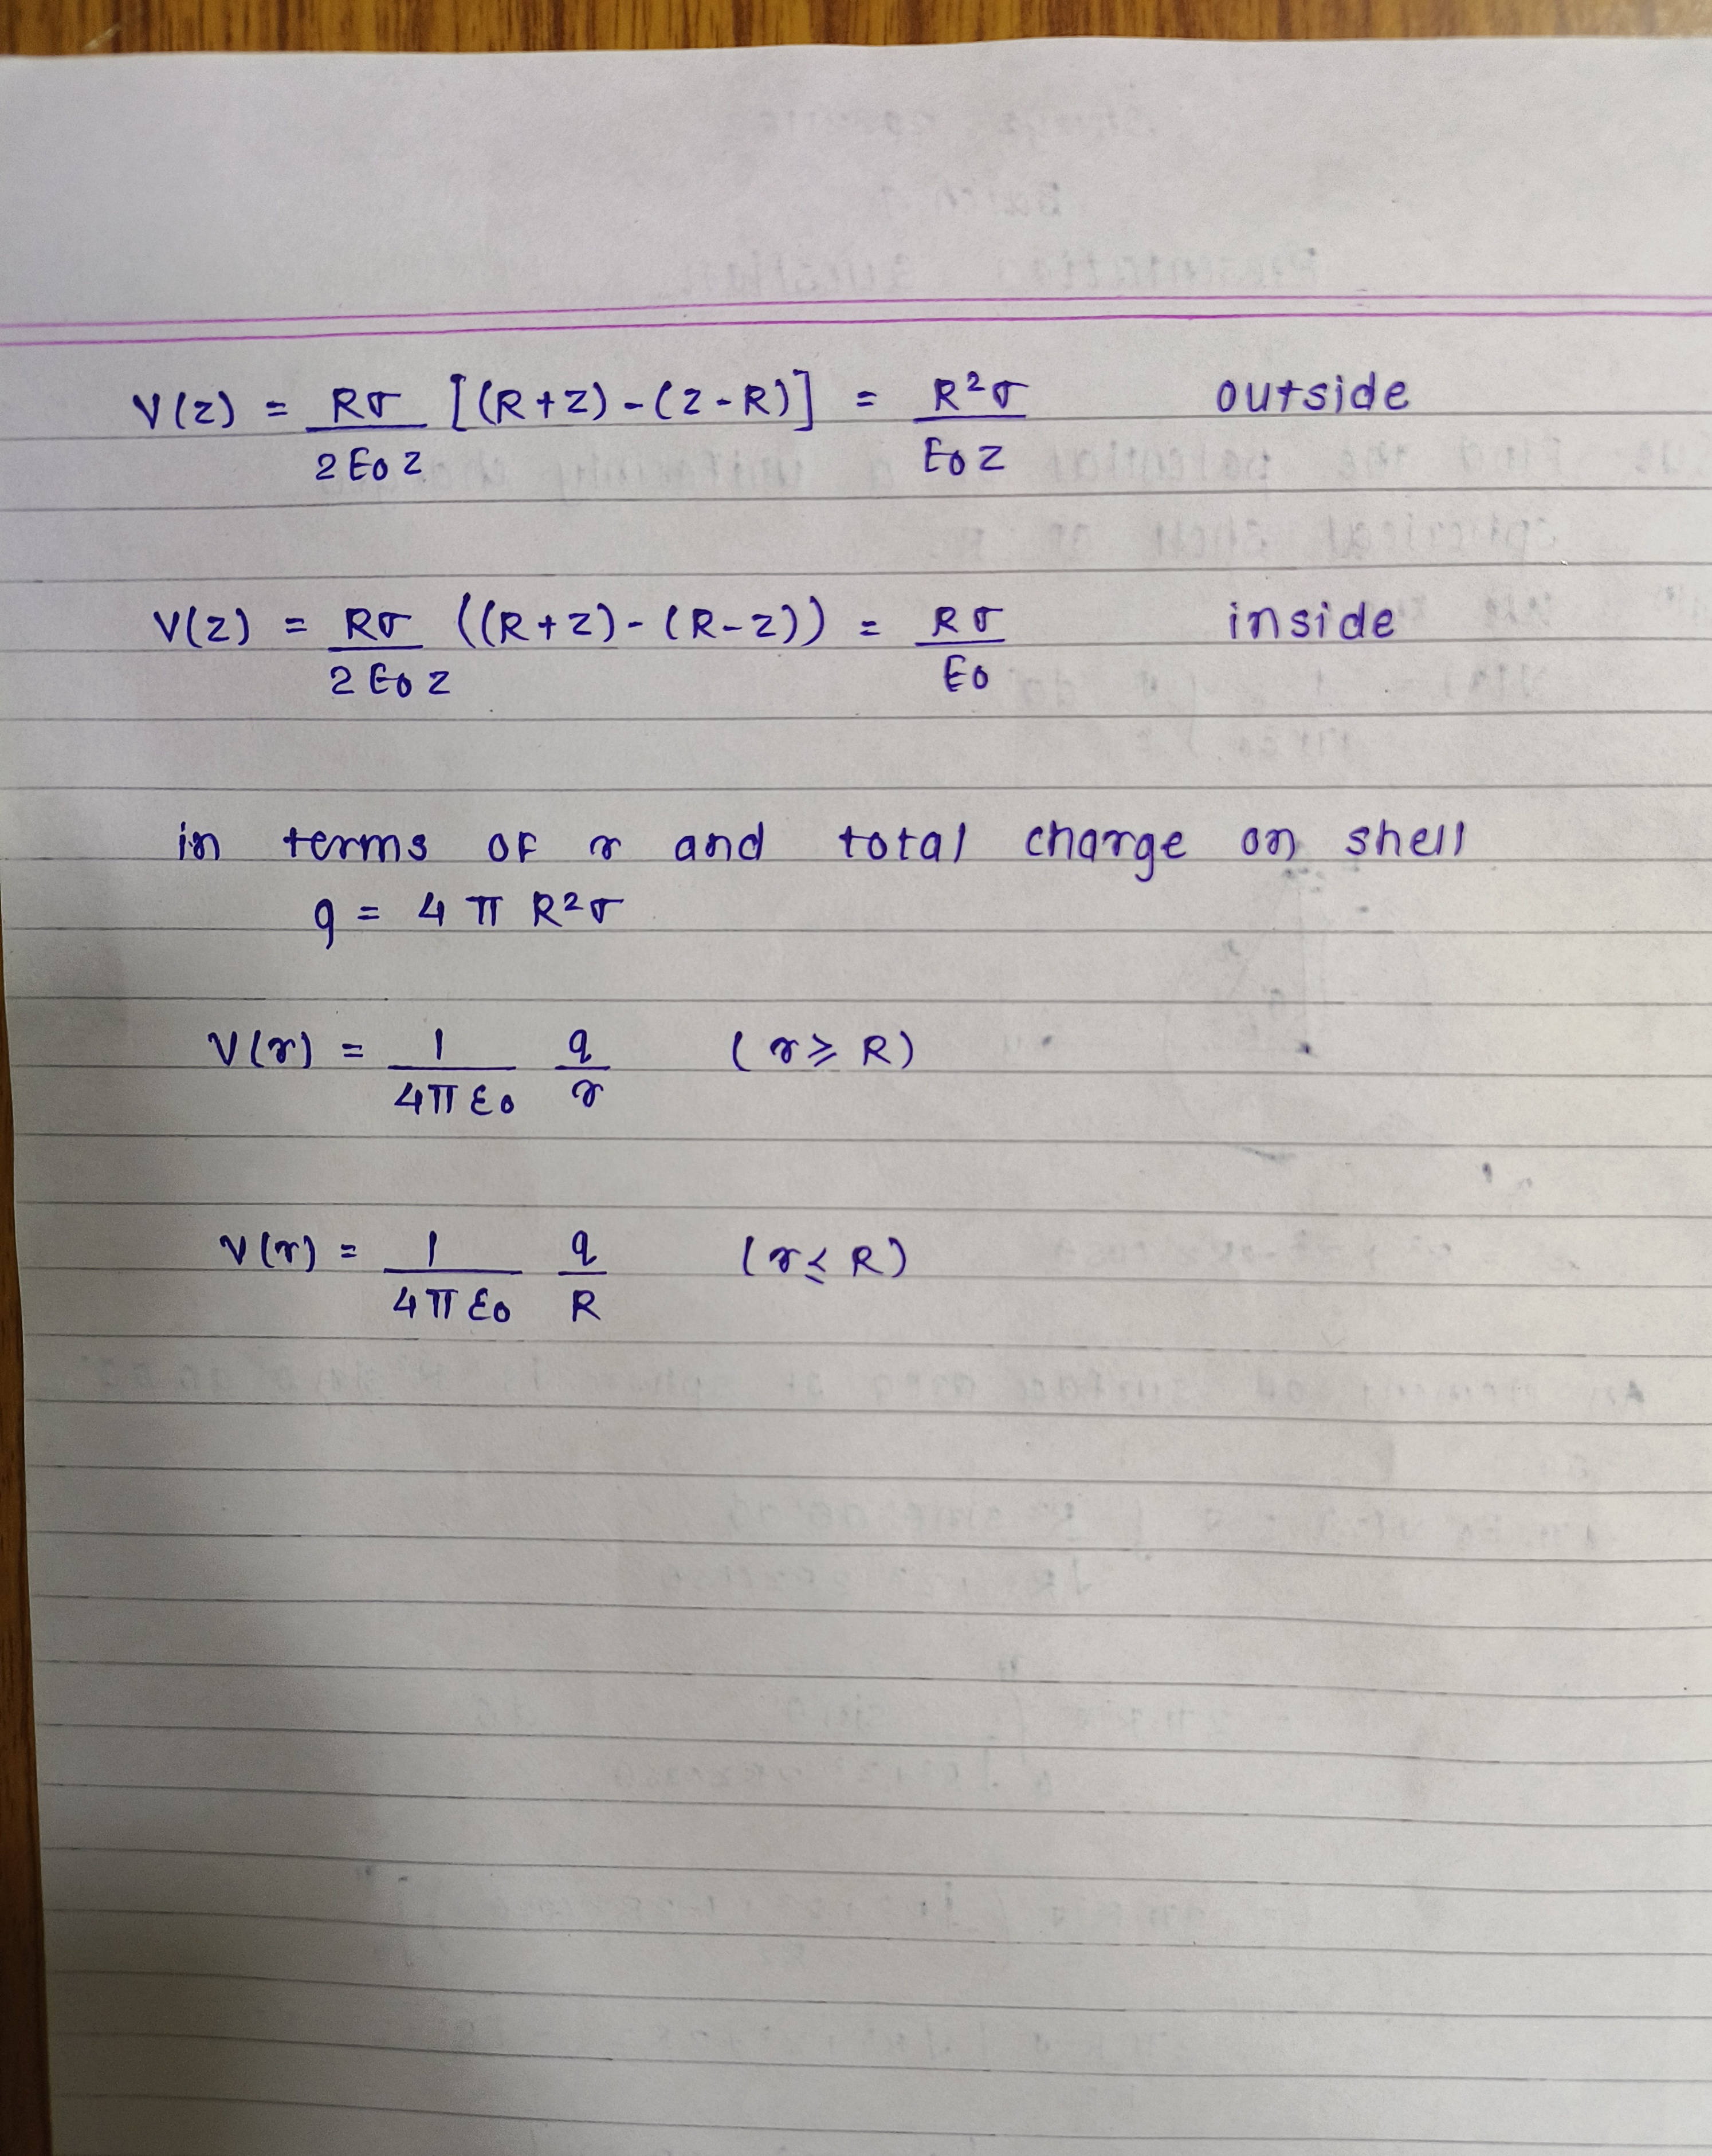 V(z) = Rσ / 2ε0 z [(R+z)-(z-R)] = R²σ / ε0 z outside
V(z) = Rσ / 2ε0 z ((R+z)-(R-z)) = Rσ / ε0 inside
in terms of r and total charge on shell
q = 4π R²σ
V(r) = 1 / 4πε0 q / r (r ≥ R)
V(r) = 1 / 4πε0 q / R (r ≤ R)